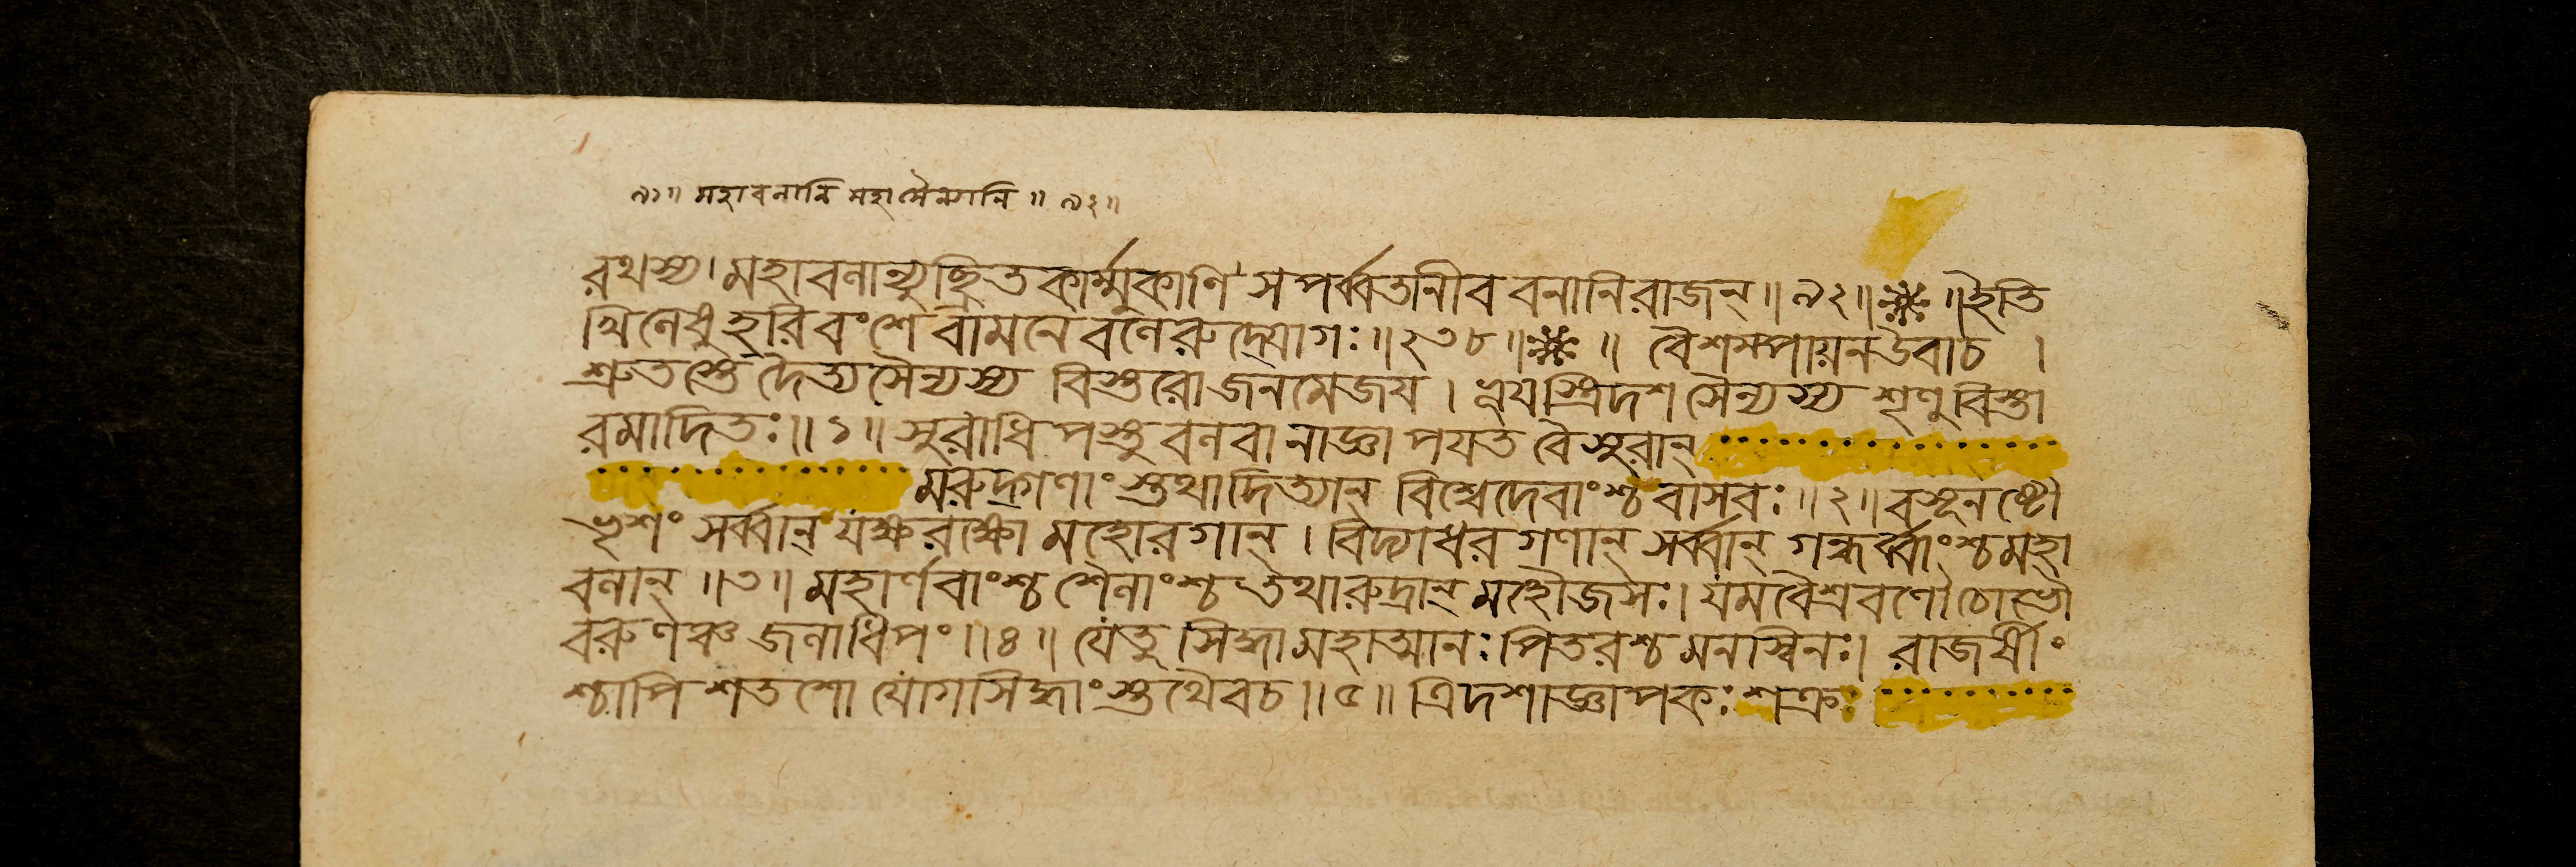 ৯১॥ মহাবলানি মহাসৈন্যানি ॥ ৯২॥
রথস্য। মহাবলান্যুচ্ছ্রিতকার্ম্মুকাণি সপর্ব্বতানীব বনানি রাজন্॥ ৯২॥ ॥ ইতি
খিলেষু হরিবংশে বামনে বলেরুদ্যোগঃ॥ ২৩৮॥ ॥ বৈশম্পায়ন উবাচ ।
শ্রুতস্তে দৈত্যসৈন্যস্য বিস্তরো জনমেজয় । ভূয়স্ত্রিদশসৈন্যস্য শৃণু বিস্তা
রমাদিতঃ॥ ১॥ সুরাধিপস্তু বলবানাজ্ঞাপয়ত বৈ সুরান্
মরুদ্গণাংস্তথাদিত্যান্ বিশ্বেদেবাংশ্চ বাসবঃ॥ ২॥ বসূনষ্টৌ
ভৃশং সর্ব্বান্ যক্ষরক্ষো মহোরগান্ । বিদ্যাধরগণান্ সর্ব্বান্ গন্ধর্ব্বাংশ্চ মহা
বলান্ ॥ ৩॥ মহার্ণবাংশ্চ শৈলাংশ্চ তথা রুদ্রান্ মহৌজসঃ। যমবৈশ্রবণৌ চোভৌ
বরুণঞ্চ জলাধিপং॥ ৪॥ যে তু সিদ্ধা মহাত্মানঃ পিতরশ্চ মনস্বিনঃ। রাজর্ষীং
শ্চাপি শতশো যোগসিদ্ধাংস্তথৈব চ॥ ৫॥ ত্রিদশাজ্ঞাপকঃ শক্রঃ